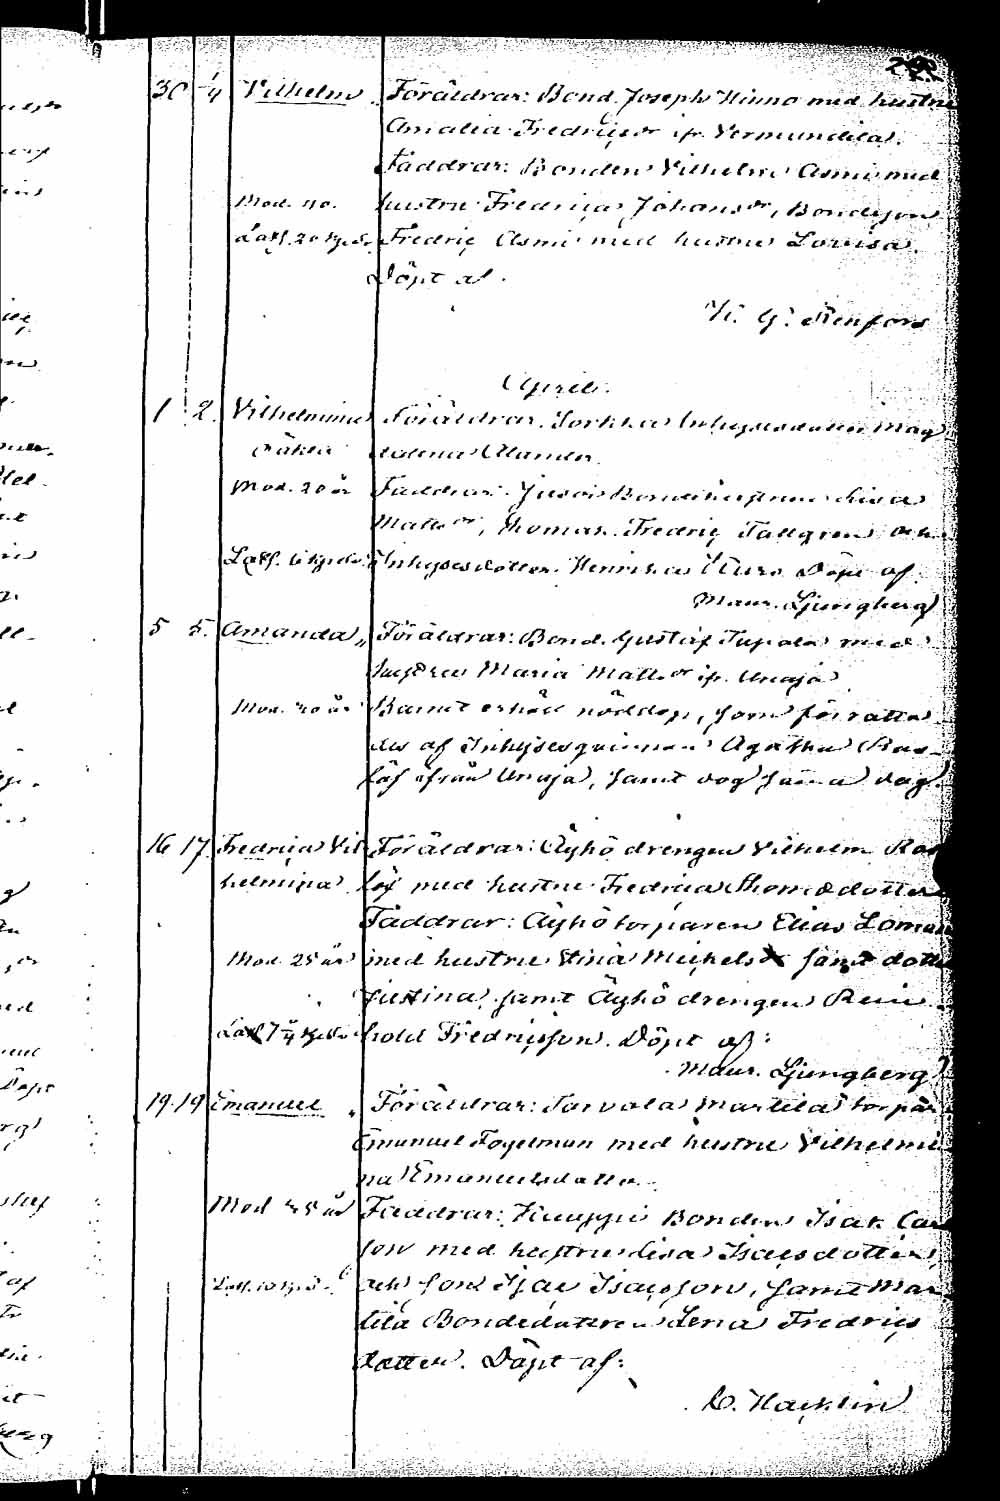 30 1/4 Vilhelm Föräldrar: Bond. Joseph Hinno med hustru
Amalia Fredrics dr ifr. Vermundila.
Faddrar: Bonden Vilhelm Asmi med
Mod. 40. hustru Fredrica Johans dr, Bondeson
Fredric Asmi med hustru Lovisa.
Döpt af.
K. G. Renfors
April.
1 2. Vilhelmina Föräldrar. Inhysesdotter Mag
oäkta dalena Ulander.
Mod. 20 år Faddrar: Bondehustrun Lisa
Matts dr, Thomas Fredric Tallgren och
Inhysesdotter Henrika Döpt af.
Maur. Ljungberg
5 5. Amanda „ Föräldrar: Bond. Gustaf Tupala med
hustru Maria Matts dr ifr. Unaja
Mod. 40 år Barnet erhöll nöddop, som förrätta-
des af Inhysesqvinnan Agatha Ras-
löf ifrån Unaja, samt dog samma dag.
16 17. Fredrica Vil Föräldrar: Äyhö drengen Vilhelm Ras
helmina löf med hustru Fredrica Thomædotter
Faddrar: Äyhö torparen Elias Loman
Mod. 25 år med hustru Stina Michels dr samt dotter
Justina, samt Äyhö drengen Rein-
hold Fredricsson. Döpt af:
Maur. Ljungberg
19. 19 Emanuel „ Föräldrar: Torvola Martila torpar
Emanuel Fogelman med hustru Vilhelmi
na Emanuelsdotter.
Mod 35 år Faddrar: Kauppi Bonden Isak Carl
son med hustru Lisa Isacsdotter,
och son Isac Isacsson, samt Mar
tila Bondedottren Lena Fredrics
dotter. Döpt af:
C. Hacklin